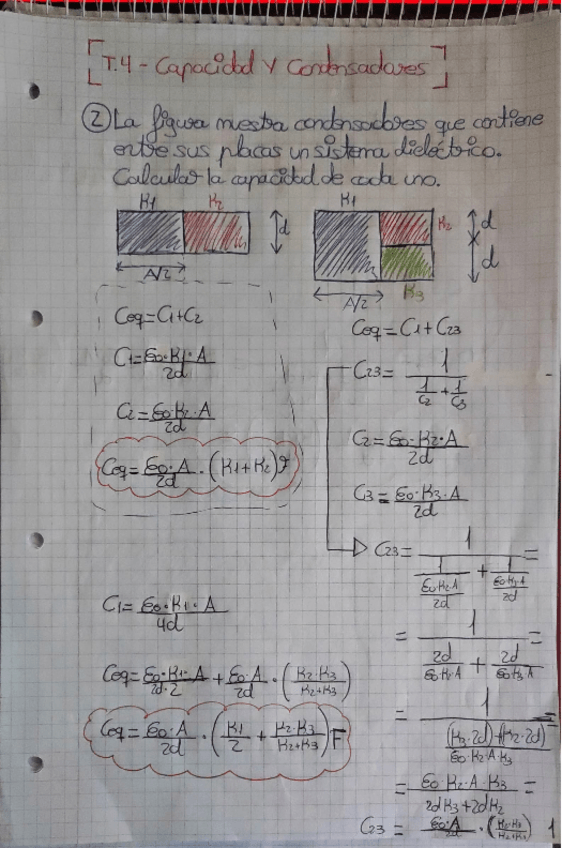 [T.4 - Capacidad y Condensadores]
② La figura muestra condensadores que contiene
entre sus placas un sistema dieléctrico.
Calcular la capacidad de cada uno.
K1 K2
d
A/2
K1
K2
d
d
A/2
K3
Ceq = C1 + C2
C1 = ε0·K1·A / 2d
C2 = ε0·K2·A / 2d
Ceq = ε0·A / 2d · (K1 + K2) F
Ceq = C1 + C23
C23 = 1 / (1/C2 + 1/C3)
C2 = ε0·K2·A / 2d
C3 = ε0·K3·A / 2d
C23 = 1 / (1/(ε0·K2·A / 2d) + 1/(ε0·K3·A / 2d)) =
= 1 / (2d / ε0·K2·A + 2d / ε0·K3·A) =
= 1 / ((K3·2d)+(K2·2d) / ε0·K2·A·K3) =
= ε0·K2·A·K3 / 2dK3 + 2dK2 =
C23 = ε0·A / 2d · (K2·K3 / K2+K3)
C1 = ε0·K1·A / 4d
Ceq = ε0·K1·A / 2d·2 + ε0·A / 2d · (K2·K3 / K2+K3)
Ceq = ε0·A / 2d · (K1 / 2 + K2·K3 / K2+K3) F